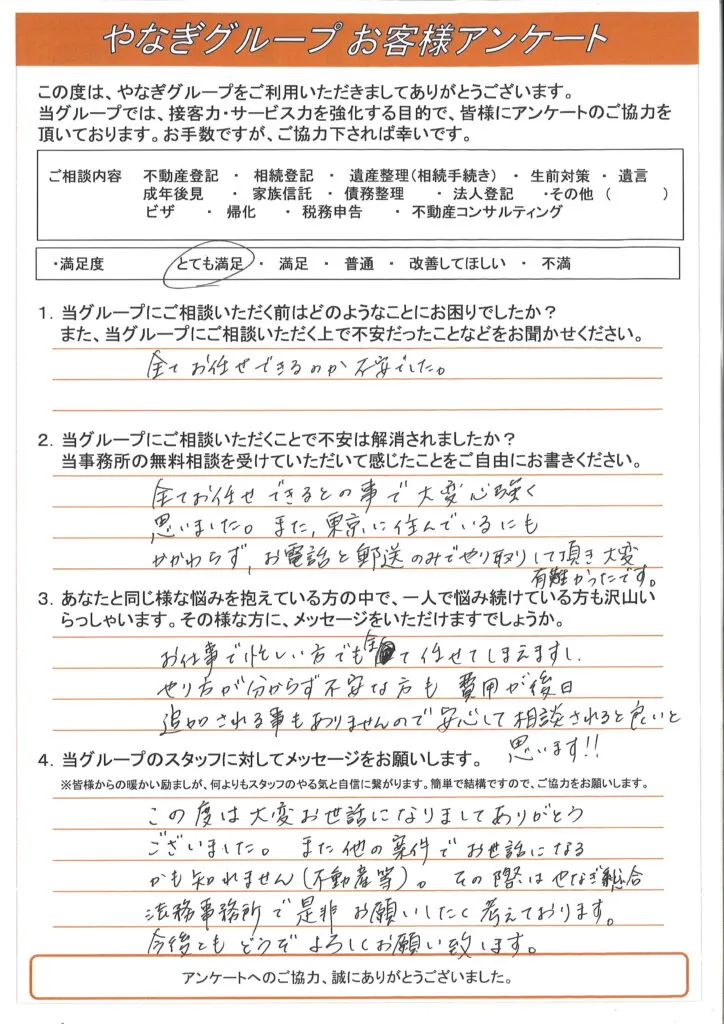 やなぎグループ お客様アンケート
この度は、やなぎグループをご利用いただきましてありがとうございます。
当グループでは、接客力・サービス力を強化する目的で、皆様にアンケートのご協力を
頂いております。お手数ですが、ご協力下されば幸いです。
ご相談内容 不動産登記 ・ 相続登記 ・ 遺産整理(相続手続き) ・ 生前対策 ・ 遺言
成年後見 ・ 家族信託 ・ 債務整理 ・ 法人登記 ・その他 ( )
ビザ ・ 帰化 ・ 税務申告 ・ 不動産コンサルティング
・満足度 とても満足 ・ 満足 ・ 普通 ・ 改善してほしい ・ 不満
1. 当グループにご相談いただく前はどのようなことにお困りでしたか?
また、当グループにご相談いただく上で不安だったことなどをお聞かせください。
全てお任せできるのか不安でした。
2. 当グループにご相談いただくことで不安は解消されましたか?
当事務所の無料相談を受けていただいて感じたことをご自由にお書きください。
全てお任せできるとの事で大変心強く
思いました。また、東京に住んでいるにも
かかわらず、お電話と郵送のみでやり取りして頂き大変
有難かったです。
3. あなたと同じ様な悩みを抱えている方の中で、一人で悩み続けている方も沢山い
らっしゃいます。その様な方に、メッセージをいただけますでしょうか。
お仕事で忙しい方でも全て任せてしまえますし、
やり方が分からず不安な方も費用が後日
追加される事もありませんので安心して相談されると良いと
思います!!
4. 当グループのスタッフに対してメッセージをお願いします。
※皆様からの暖かい励ましが、何よりもスタッフのやる気と自信に繋がります。簡単で結構ですので、ご協力をお願いします。
この度は大変お世話になりましてありがとう
ございました。また他の案件でお世話になる
かも知れません(不動産等)。その際はやなぎ総合
法務事務所で是非お願いしたく考えております。
今後ともどうぞよろしくお願い致します。
アンケートへのご協力、誠にありがとうございました。